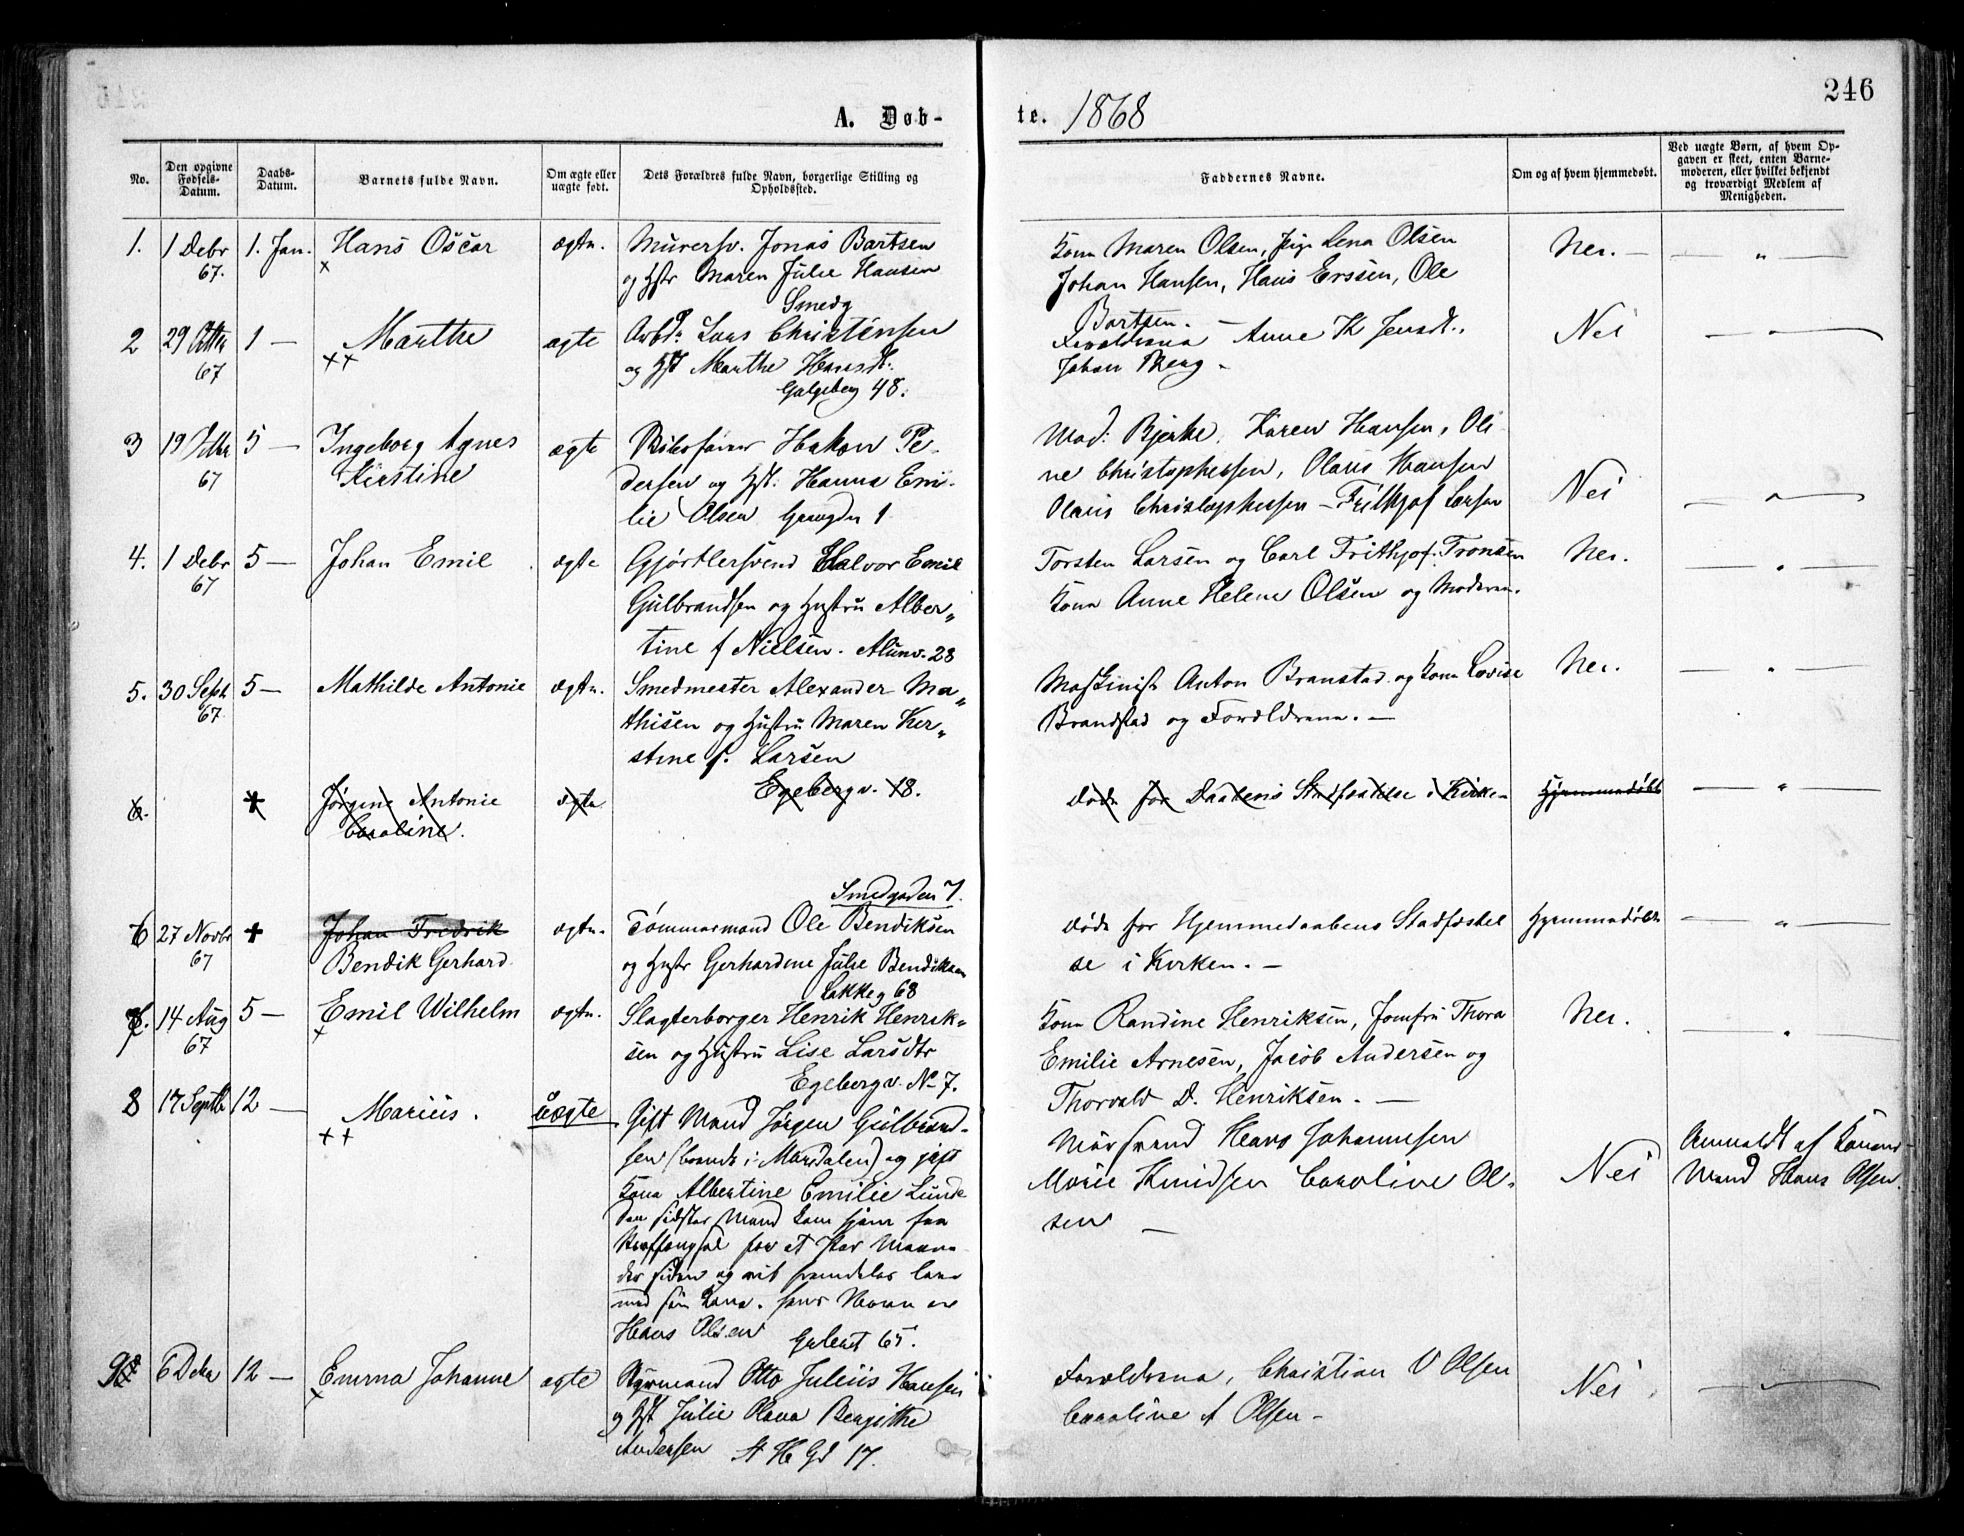 246
A. Døb-
te. 1868
No.
Den opgivne
Fødsels-
Datum.
Daabs-
Datum.
Barnets fulde Navn.
Om ægte eller
uægte født.
Dets Forældres fulde Navn, borgerlige Stilling og
Opholdssted.
Faddernes Navne.
Om og af hvem hjemmedøbt.
Ved uægte Børn, af hvem Op-
gaven er skeet, enten Barne-
moderen, eller hvilket bekjendt
og troværdigt Medlem af
Menigheden.
1. 1 Debr 67. 1. Jan. Hans Oscar ægte.
Murersv. Jonas Bartsen
og Hstr Maren Julie Hansen
Smedg
Kone Maren Olsen, Pige Lena Olsen
Johan Hansen, Hans Erssen, Ole
Bartsen. —
Nei. — — „ —
2 29 67 1 — Marthe ægte
Arbdr Lars Christensen
og Hst Marthe Hansdt.
Galgeberg 48.
Forældrene Anne K Jensdt.,
Johan Berg -
Nei
3 19 67 5 — Ingeborg Agnes
Kirstine ægte
Hakon Pe-
dersen og Hst. Hanna Emi-
lie Olsen 1
Mad. Bjerke, Karen Hansen, Oli
ne Christophersen, Olaus Hansen
Olaus Christophersen — Frithjof Larsen
Nei
4. 1 Debr 67 5 — Johan Emil ægte
Gjørtlersvend Halvor Emil
Gulbrandsen og Hustru Alber„
tine f Nielsen. Alunv. 28
Torsten Larsen og Carl Frithjof Tronsen
Kone Anne Helene Olsen og Moderen.
Nei.
5. 30 Sept. 67 5 — Mathilde Antonie ægte.
Smedmester Alexander Ma„
thisen og Hustru Maren Ker„
stine f. Larsen
Egebergv. 18.
Maskinist Anton Branstad og Kone Lovise
Brandstad og Forældrene. —
Nei.
6. + Jørgine Antonie
Caroline. ægte
døde før Daabens Stadfæstelse i Kirken
Hjemmedøbt
Smedgaden 7.
6 27 Novbr 67 + Johan Fredrik
Bendik Gerhard. ægte.
Tømmermand Ole Bendiksen
og Hustr Gerhardine Julie Bendiksen
Lakkeg 68
døde før Hjemmedaabens Stadfæstel
se i Kirken. —
Hjemmedøbt
7. 14 Aug 67 5 — Emil Wilhelm ægte.
Slagterborger Henrik Henrik-
sen og Hustru Lise Larsdtr
Egebergv. No 7.
Kone Randine Henriksen, Jomfru Thora
Emilie Arnesen, Jacob Andersen og
Thorvald D. Henriksen. —
Nei.
8 17 Septbr 12 — Marius. uægte
Gift Mand Jørgen Gulbrand-
sen (boende i Maridalen) og gift
Kone Albertine Emilie Lunde
Den sidstes Mand kom hjem fra
Straffangsel for et Par Maane
der siden og
med sin Kone. Hans Navn er
Hans Olsen 65.
Mursvend Hans Johannesen
Marie Knudsen Caroline Ol-
sen —
Nei
Anmeldt af Konens
Mand Hans Olsen.
9 6 Debr 12 — Emma Johanne ægte
Styrmand Otto Julius Hansen
og Hst Julie Olava Bergithe
Andersen St H Gd 17.
Forældrene, Christian V Olsen
Caroline A Olsen —
Nei